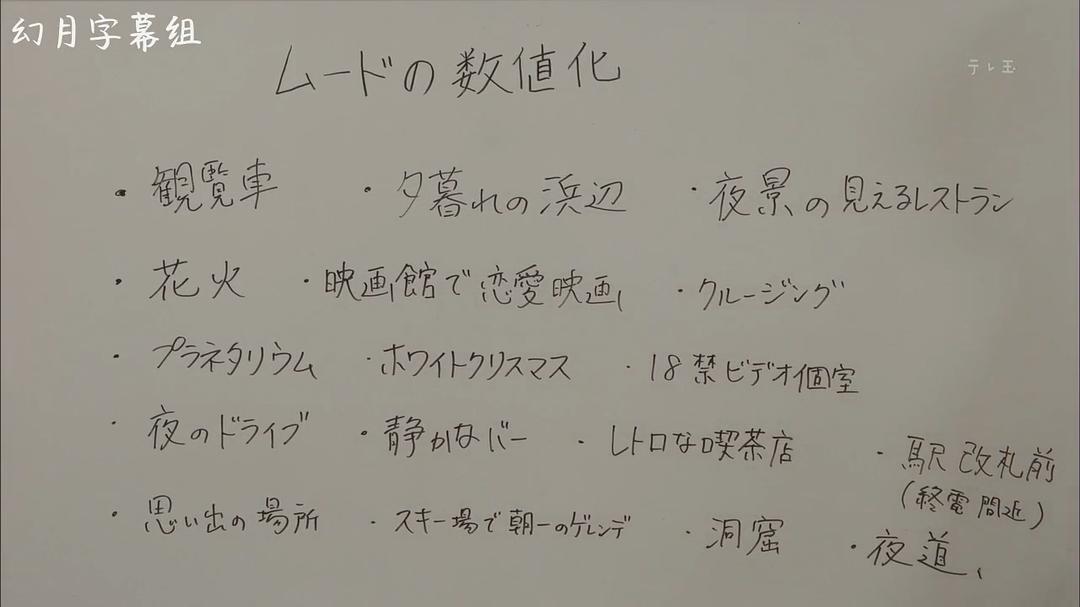 幻月字幕組
テレ玉
ムードの数値化
・観覧車 ・夕暮れの浜辺 ・夜景の見えるレストラン
・花火 ・映画館で恋愛映画 ・クルージング
・プラネタリウム ・ホワイトクリスマス ・18禁ビデオ個室
・夜のドライブ ・静かなバー ・レトロな喫茶店 ・駅改札前
(終電間近)
・思い出の場所 ・スキー場で朝一のゲレンデ ・洞窟 ・夜道、